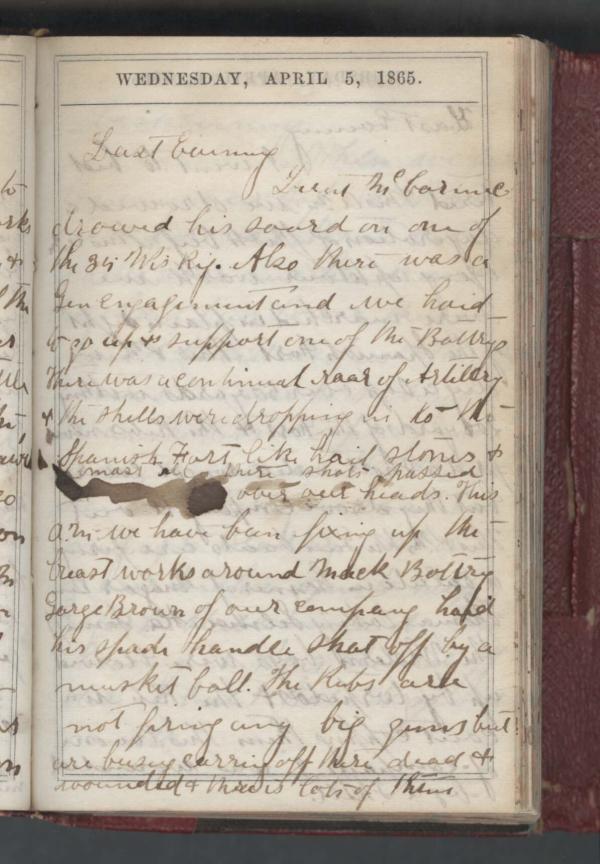 WEDNESDAY, APRIL 5, 1865.
Last Evening
Lieut Mc
drowed his soard on one of
the 35 Wis Rig. Also there was a
Gen engagement and we haid
to go up & support one of the Battrys
There was a continual roar of Artillery
& the shells were dropping in to the
Spanish Fort like hail stones &
omast all there shots passed
over our heads. This
a.m. we have ben fixing up the
breast works around Mack Battry
Gorge Brown of our company haid
his spade handle shot off by a
musket ball. The Rebs are
not firing any big guns but
are busey carrin off there dead &
wounded & there is lots of them